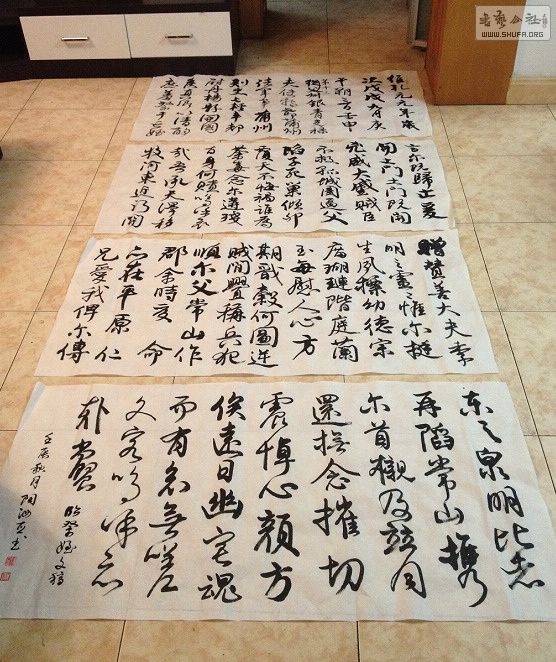 書藝公社
WWW.SHUFA.ORG
維乾元元年歲
次戊戌九月庚
午朔三日壬申
第十三叔銀青光祿
夫使持節蒲州
諸軍事蒲州
刺史上輕車都
尉丹楊縣開國
侯真卿以清酌
庶羞祭于亡姪
言尔既歸止爰
開土門土門既開
兇威大蹙賊臣
不救孤城圍逼父
陷子死巢傾卵
覆天不悔禍誰為
荼毒念尔遘殘
百身何贖嗚呼哀
哉吾承天澤移
牧河東近河關
贈贊善大夫季
明之靈惟尔挺
生夙標幼德宗
廟瑚璉階庭蘭
玉每慰人心方
期戩穀何圖逆
賊閒釁稱兵犯
順尔父常山作
郡余時受命
亦在平原仁
兄愛我俾尔傳
東之泉明比者
再陷常山攜
尔首櫬及茲同
還撫念摧切
震悼心顏方
俟遠日幽宅魂
而有知無嗟
久客嗚呼哀
哉尚饗
臨祭姪文稿
壬辰秋月